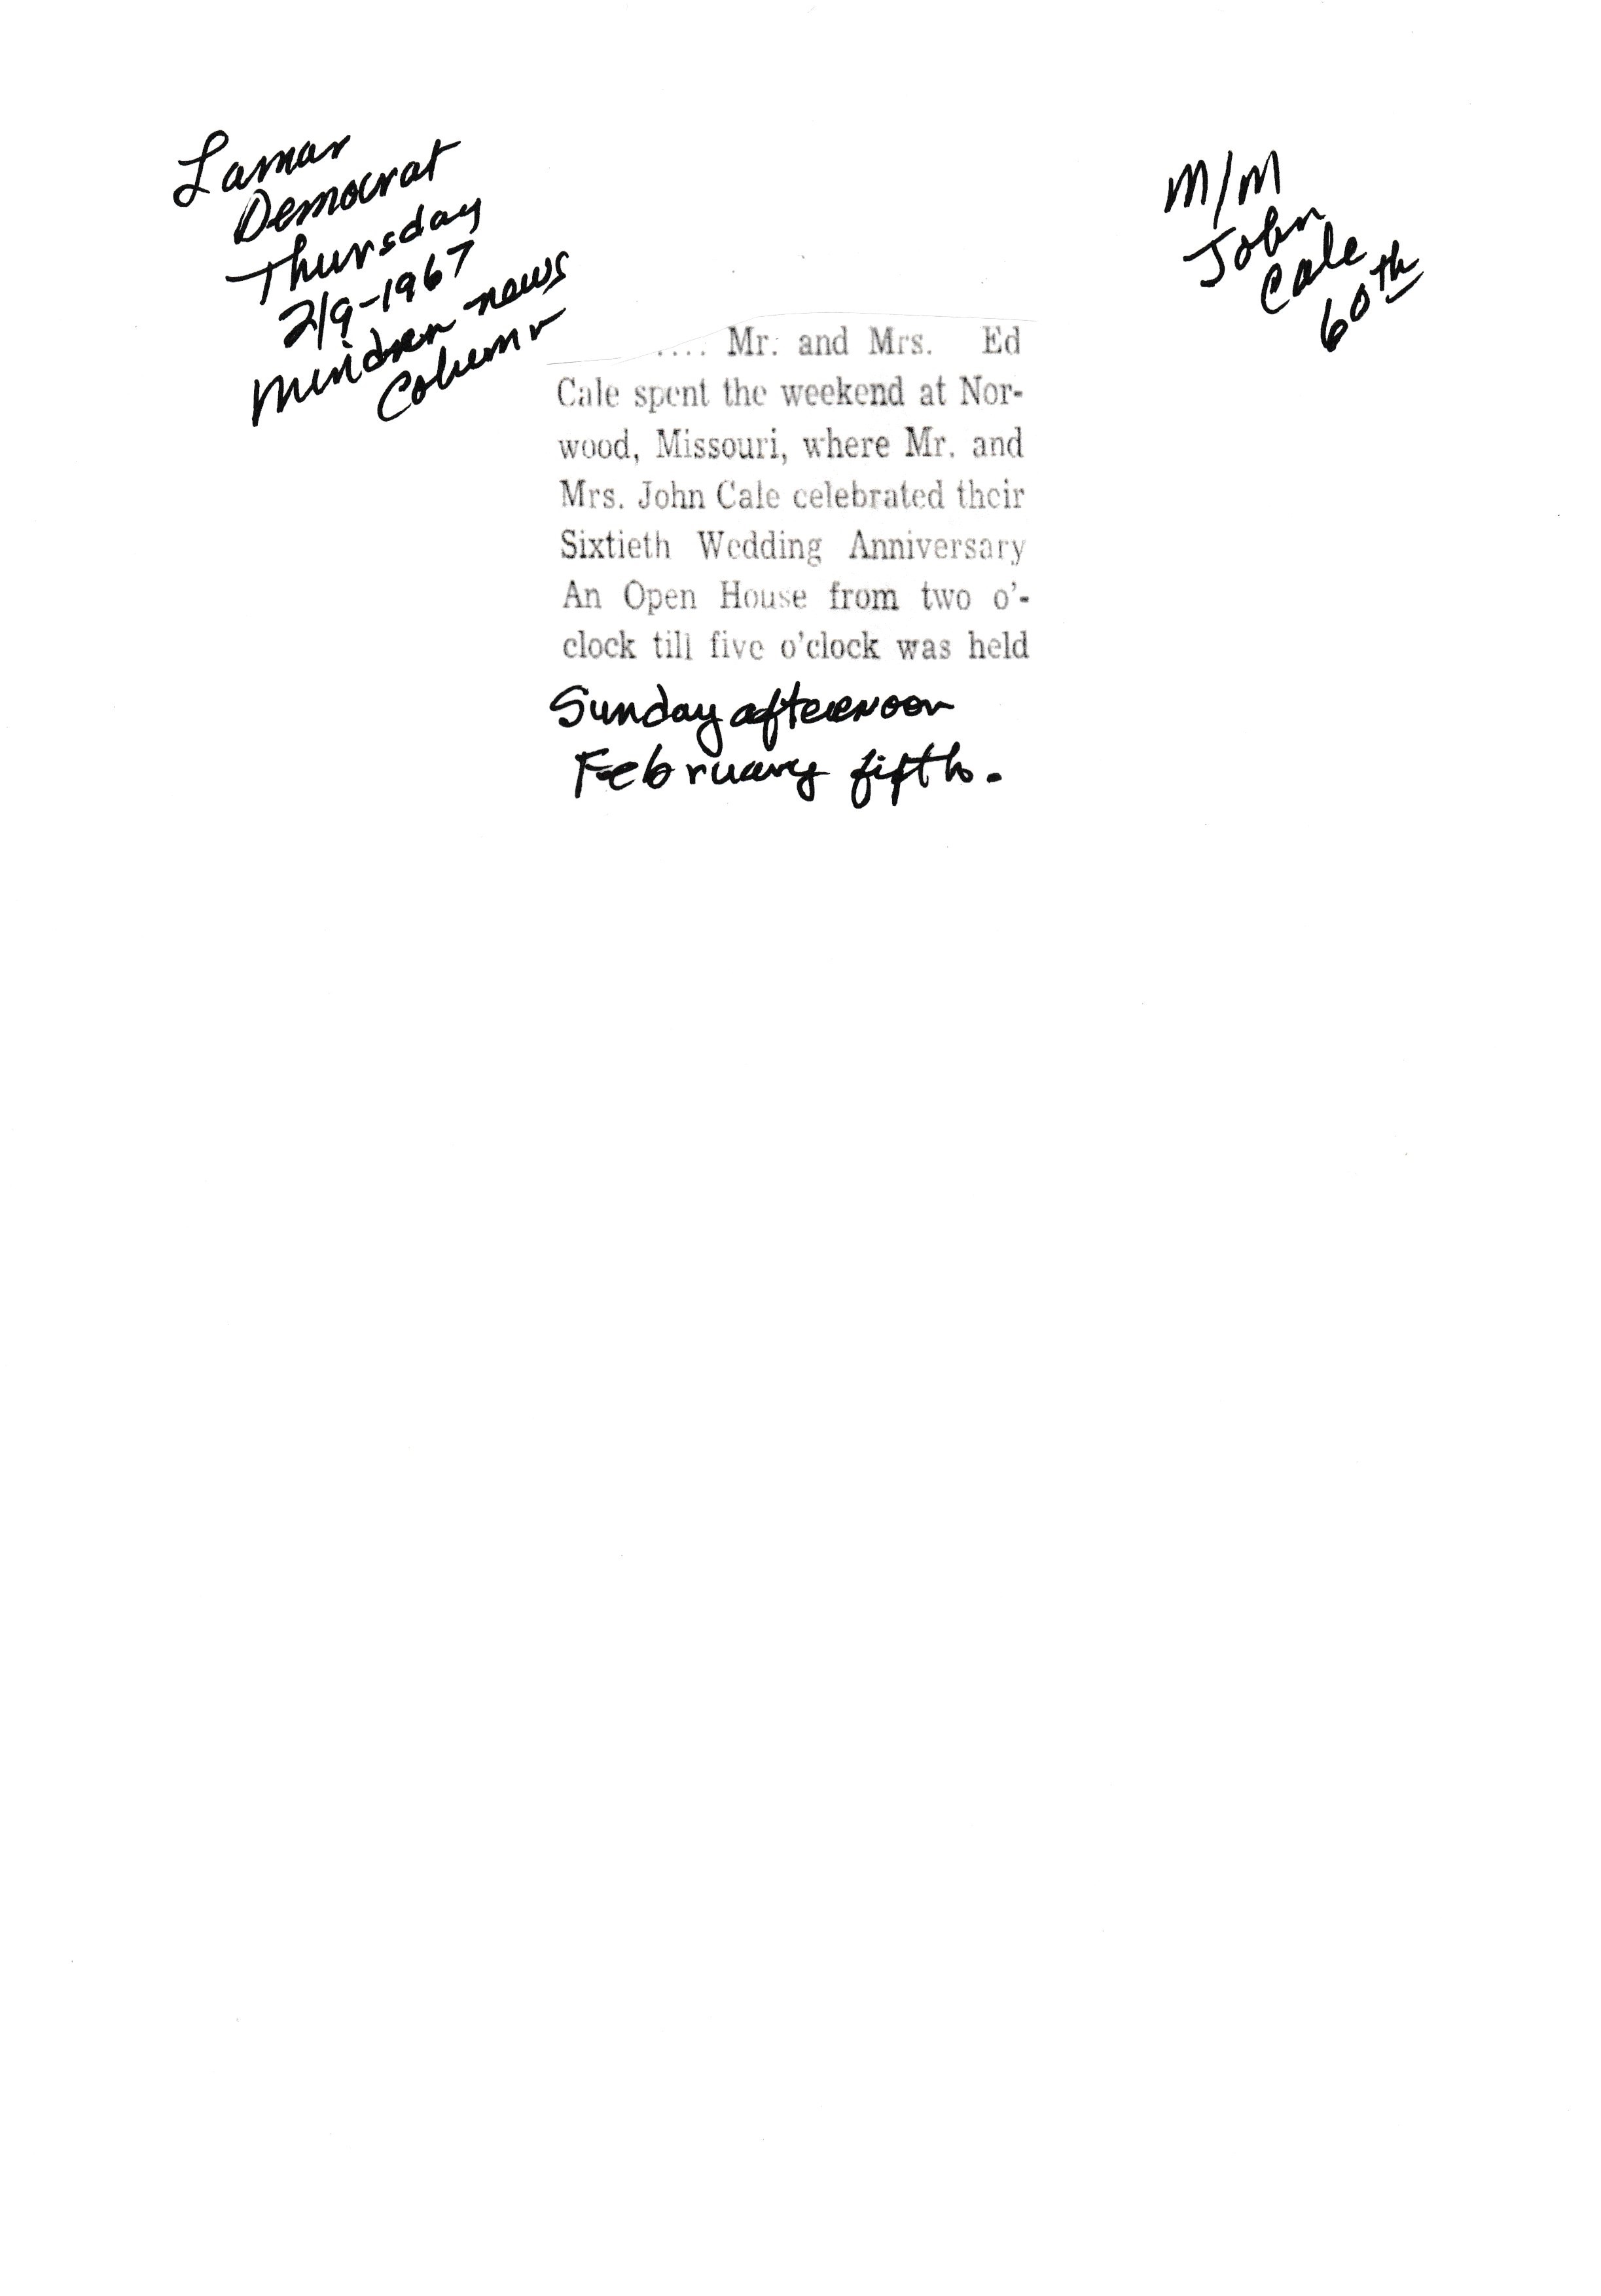 Lamar
Democrat
Thursday
2/9-1967
Minden news
Column
M/M
John
Cale
60th
.... Mr. and Mrs. Ed
Cale spent the weekend at Nor-
wood, Missouri, where Mr. and
Mrs. John Cale celebrated their
Sixtieth Wedding Anniversary
An Open House from two o'-
clock till five o'clock was held
Sunday afternoon
February fifth.